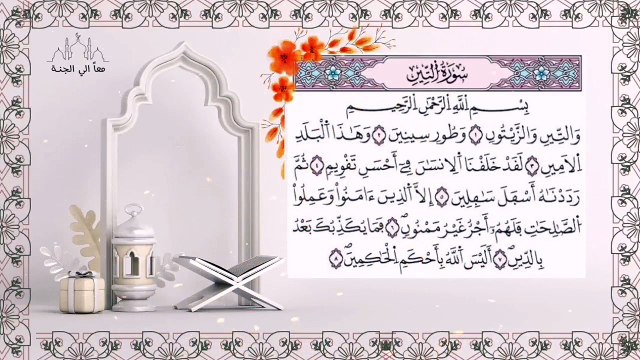 معاً الي الجنة
سُورَةُ التِّينِ
بِسْمِ اللَّهِ الرَّحْمَٰنِ الرَّحِيمِ
وَالتِّينِ وَالزَّيْتُونِ ۝١ وَطُورِ سِينِينَ ۝٢ وَهَٰذَا الْبَلَدِ
الْأَمِينِ ۝٣ لَقَدْ خَلَقْنَا الْإِنسَٰنَ فِي أَحْسَنِ تَقْوِيمٍ ۝٤ ثُمَّ
رَدَدْنَٰهُ أَسْفَلَ سَٰفِلِينَ ۝٥ إِلَّا الَّذِينَ ءَامَنُوا وَعَمِلُوا
الصَّٰلِحَٰتِ فَلَهُمْ أَجْرٌ غَيْرُ مَمْنُونٍ ۝٦ فَمَا يُكَذِّبُكَ بَعْدُ
بِالدِّينِ ۝٧ أَلَيْسَ اللَّهُ بِأَحْكَمِ الْحَٰكِمِينَ ۝٨